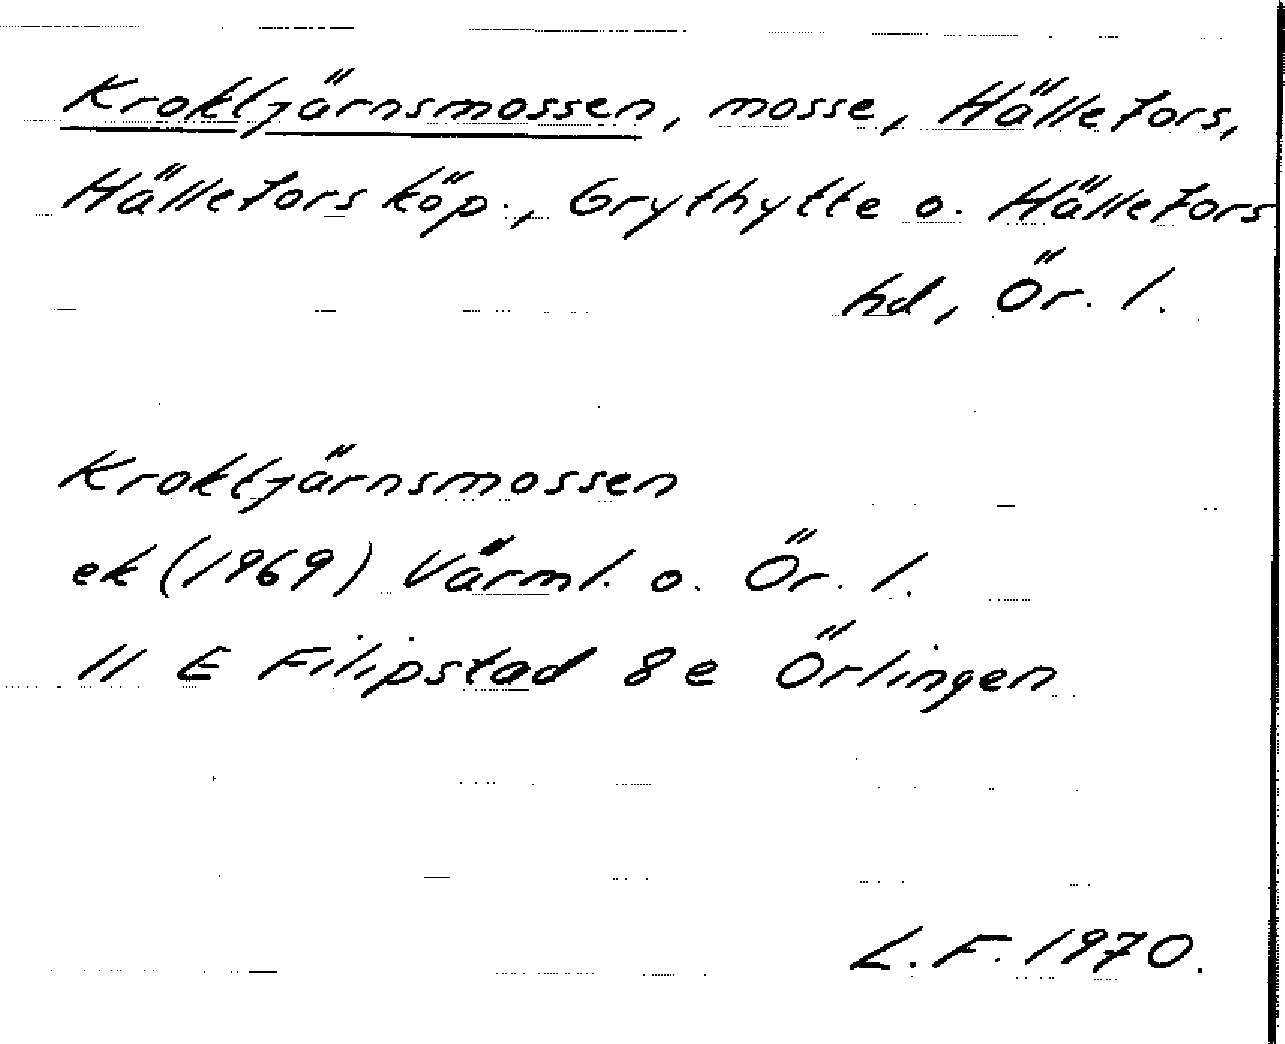 Kroktjärnsmossen, mosse, Hällefors,
Hällefors köp., Grythytte o. Hällefors
hd, Ör. l.
Kroktjärnsmossen
ek (1969) Värml. o. Ör. l.
11 E Filipstad 8e Örlingen
L.F. 1970.